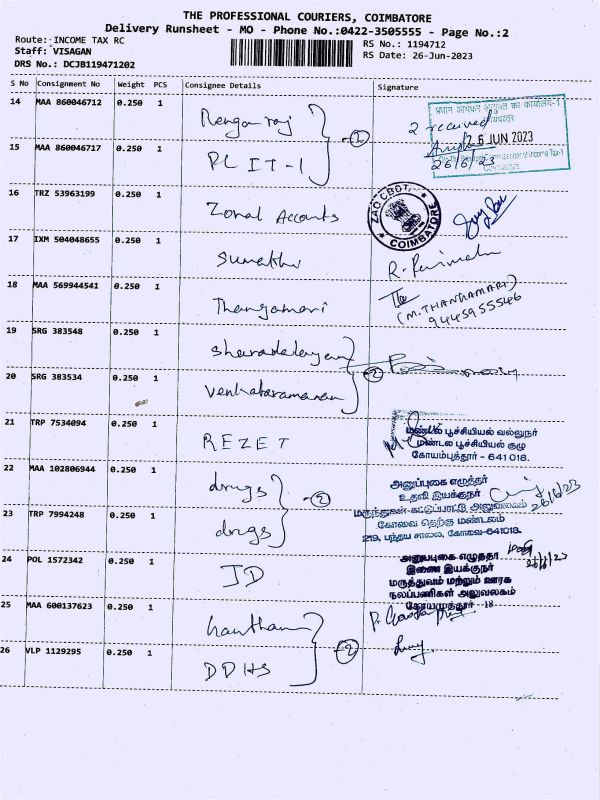 THE PROFESSIONAL COURIERS, COIMBATORE
Delivery Runsheet - MO - Phone No.:0422-3505555 - Page No.:2
Route: INCOME TAX RC
RS No.: 1194712
Staff: VISAGAN
RS Date: 26-Jun-2023
DRS No.: DCJB119471202
S No Consignment No Weight PCS Consignee Details Signature
14 MAA 860046712 0.250 1 Rengaraj
2 received
26 JUN 2023
26/6/23
15 MAA 860046717 0.250 1 PC IT-1
①
16 TRZ 53963199 0.250 1 Zonal Accounts
ZAO, CBDT,
COIMBATORE
17 IXM 504048655 0.250 1 Sumathi
18 MAA 569944541 0.250 1 Thangamari
(M.THANGAMARI)
9445955546
19 SRG 383548 0.250 1
②
20 SRG 383534 0.250 1 Venkataramanan
21 TRP 7534094 0.250 1 REZET
மண்டல பூச்சியியல் வல்லுநர்
மண்டல பூச்சியியல் குழு
கோயம்புத்தூர் - 641 018.
22 MAA 102806944 0.250 1 drugs
②
அனுப்புகை எழுத்தர்
உதவி இயக்குநர்
26/6/23
மருந்துகள் கட்டுப்பாட்டு அலுவலகம்
23 TRP 7994248 0.250 1 drugs
கோவை தெற்கு மண்டலம்
219, பந்தய சாலை, கோவை-641018.
24 POL 1572342 0.250 1 JD
இணை இயக்குநர்
மருத்துவம் மற்றும் ஊரக
நலப்பணிகள் அலுவலகம்
25 MAA 600137623 0.250 1
②
26 VLP 1129295 0.250 1 DDHS